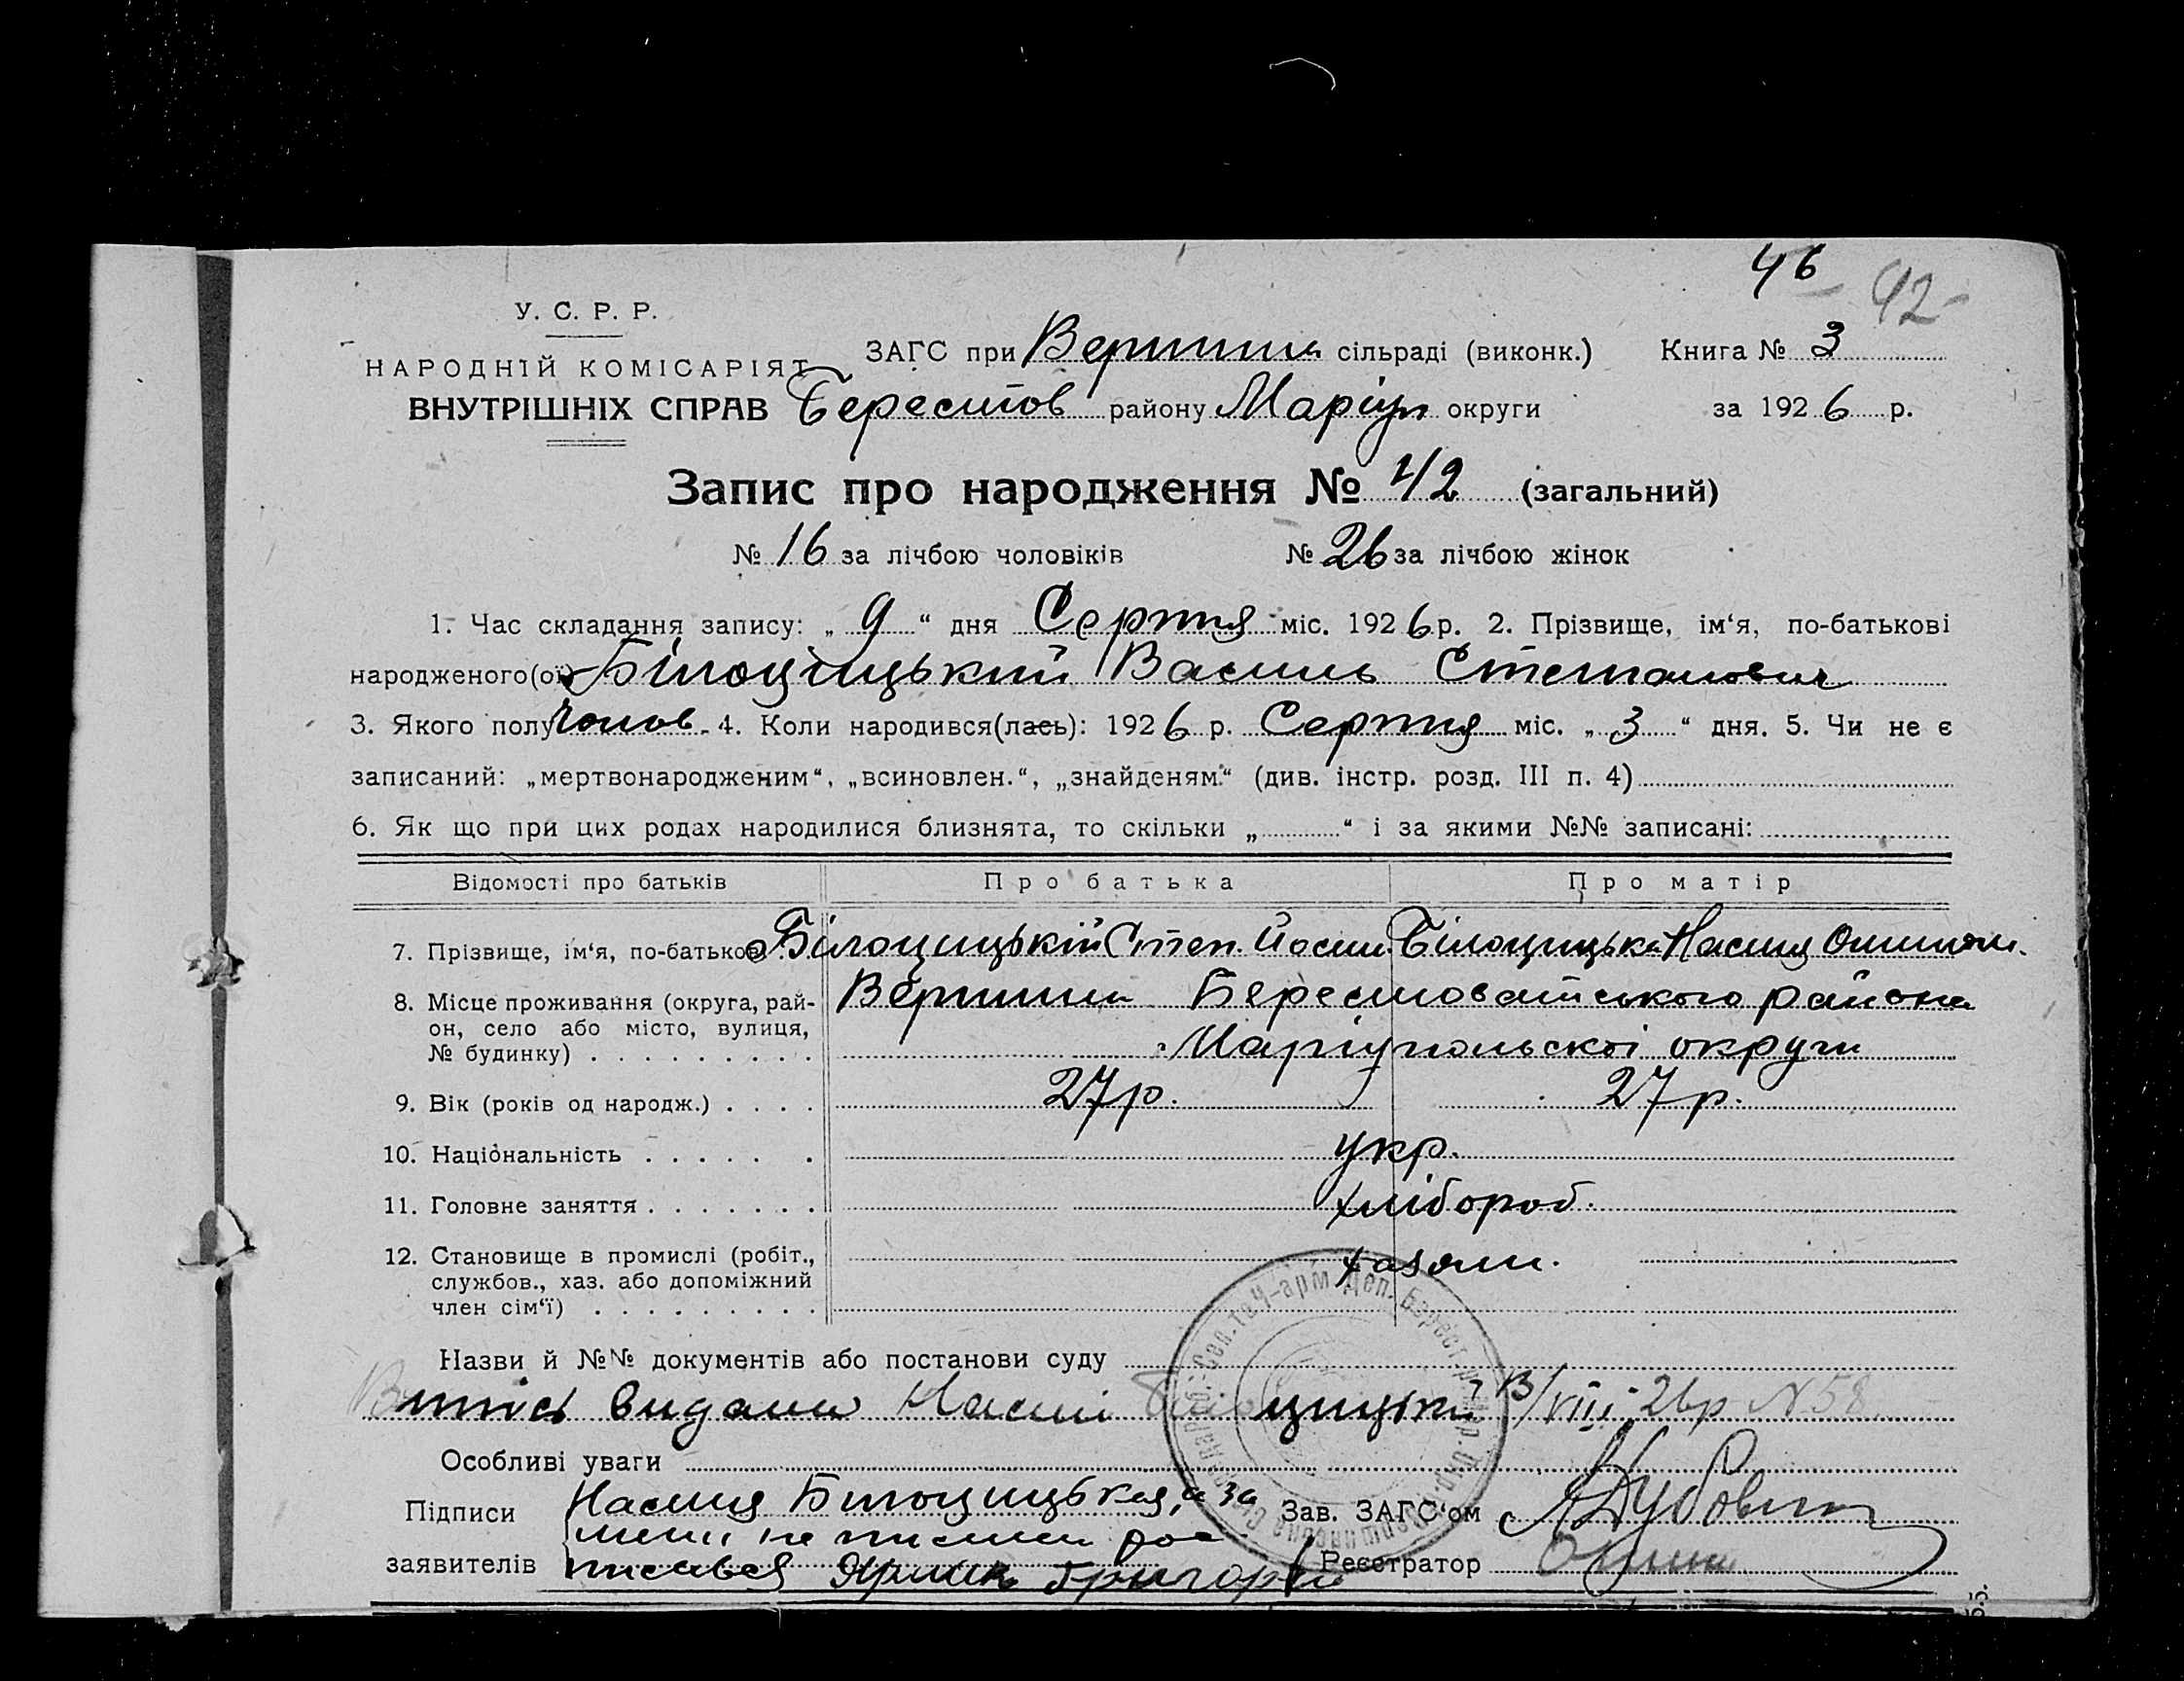 46
42-
У. С. Р. Р.
НАРОДНІЙ КОМІСАРІЯТ
ВНУТРІШНІХ СПРАВ
ЗАГС при сільраді (виконк.) Книга № 3
Берестов району Маріуп округи за 1926 р.
Запис про народження № 42 (загальний)
№ 16 за лічбою чоловіків № 26 за лічбою жінок
1. Час складання запису: „ 9 “ дня Серпня міс. 1926 р. 2. Прізвище, ім‘я, по-батькові
народженого(ої) Білоцицький Василь Степанович
3. Якого полу Чолов. 4. Коли народився(лась): 1926 р. Серпня міс. „ 3 “ дня. 5. Чи не є
записаний: „мертвонародженим“, „всиновлен.“, „знайденям“ (див. інстр. розд. III п. 4)
6. Як що при цих родах народилися близнята, то скільки „ “ і за якими №№ записані:
Відомості про батьків Про батька Про матір
7. Прізвище, ім‘я, по-батькові Білоцицькій Степ. Йосип. Білоцицька Настя
8. Місце проживання (округа, рай-
он, село або місто, вулиця,
№ будинку)
Вершина Берестоватського района
Маріупольскоі округи
9. Вік (років од народж.) 27 р. 27 р.
10. Національність укр.
11. Головне заняття хлібороб.
12. Становище в промислі (робіт.,
службов., хаз. або допоміжний
член сім‘ї)
хазяин.
Назви й №№ документів або постанови суду
Витпісь видана Насті цицькій 13/VIII-26р N 58
Особливі уваги
Підписи
заявителів
Настя Білоцицькая, а за
росписався Григорій
Зав. ЗАГС‘ом
Реєстратор